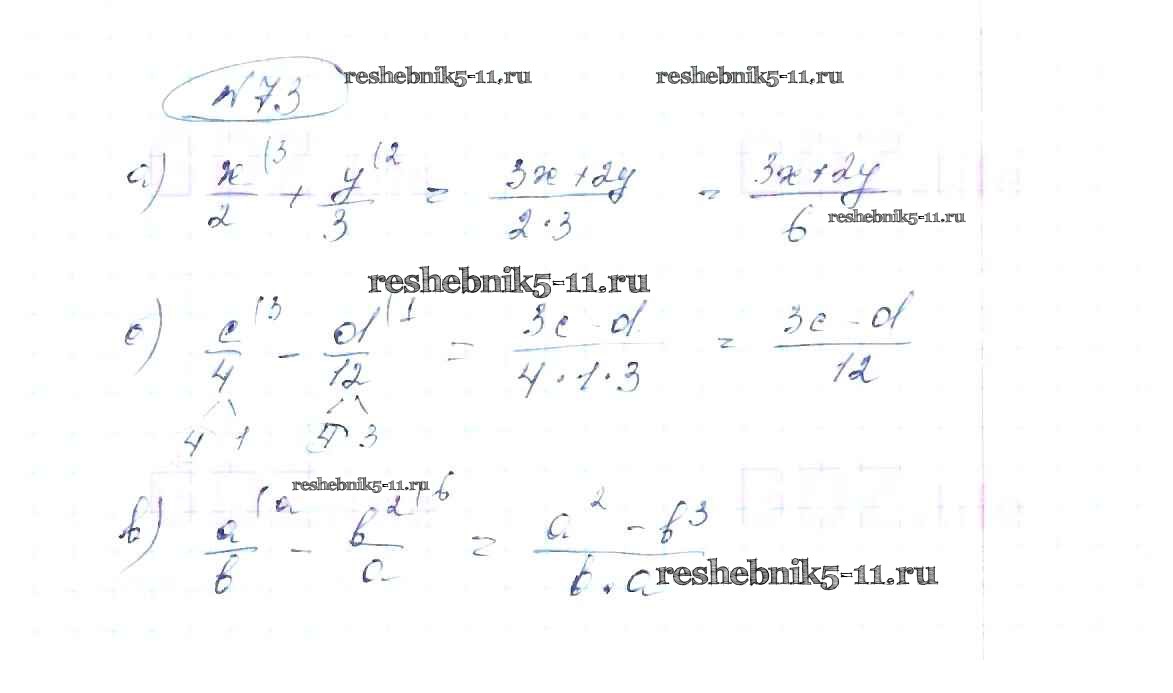 №73 reshebnik5-11.ru reshebnik5-11.ru
а) x/2 (3 + y/3 (2 = 3x+2y / 2·3 = 3x+2y / 6
reshebnik5-11.ru
reshebnik5-11.ru
c/4 (3 - d/12 (1 = 3c-d / 4·1·3 = 3c-d / 12
4 1 4 3
reshebnik5-11.ru
в) a/b (a - b²/a (b = a²-b³ / b·a
reshebnik5-11.ru